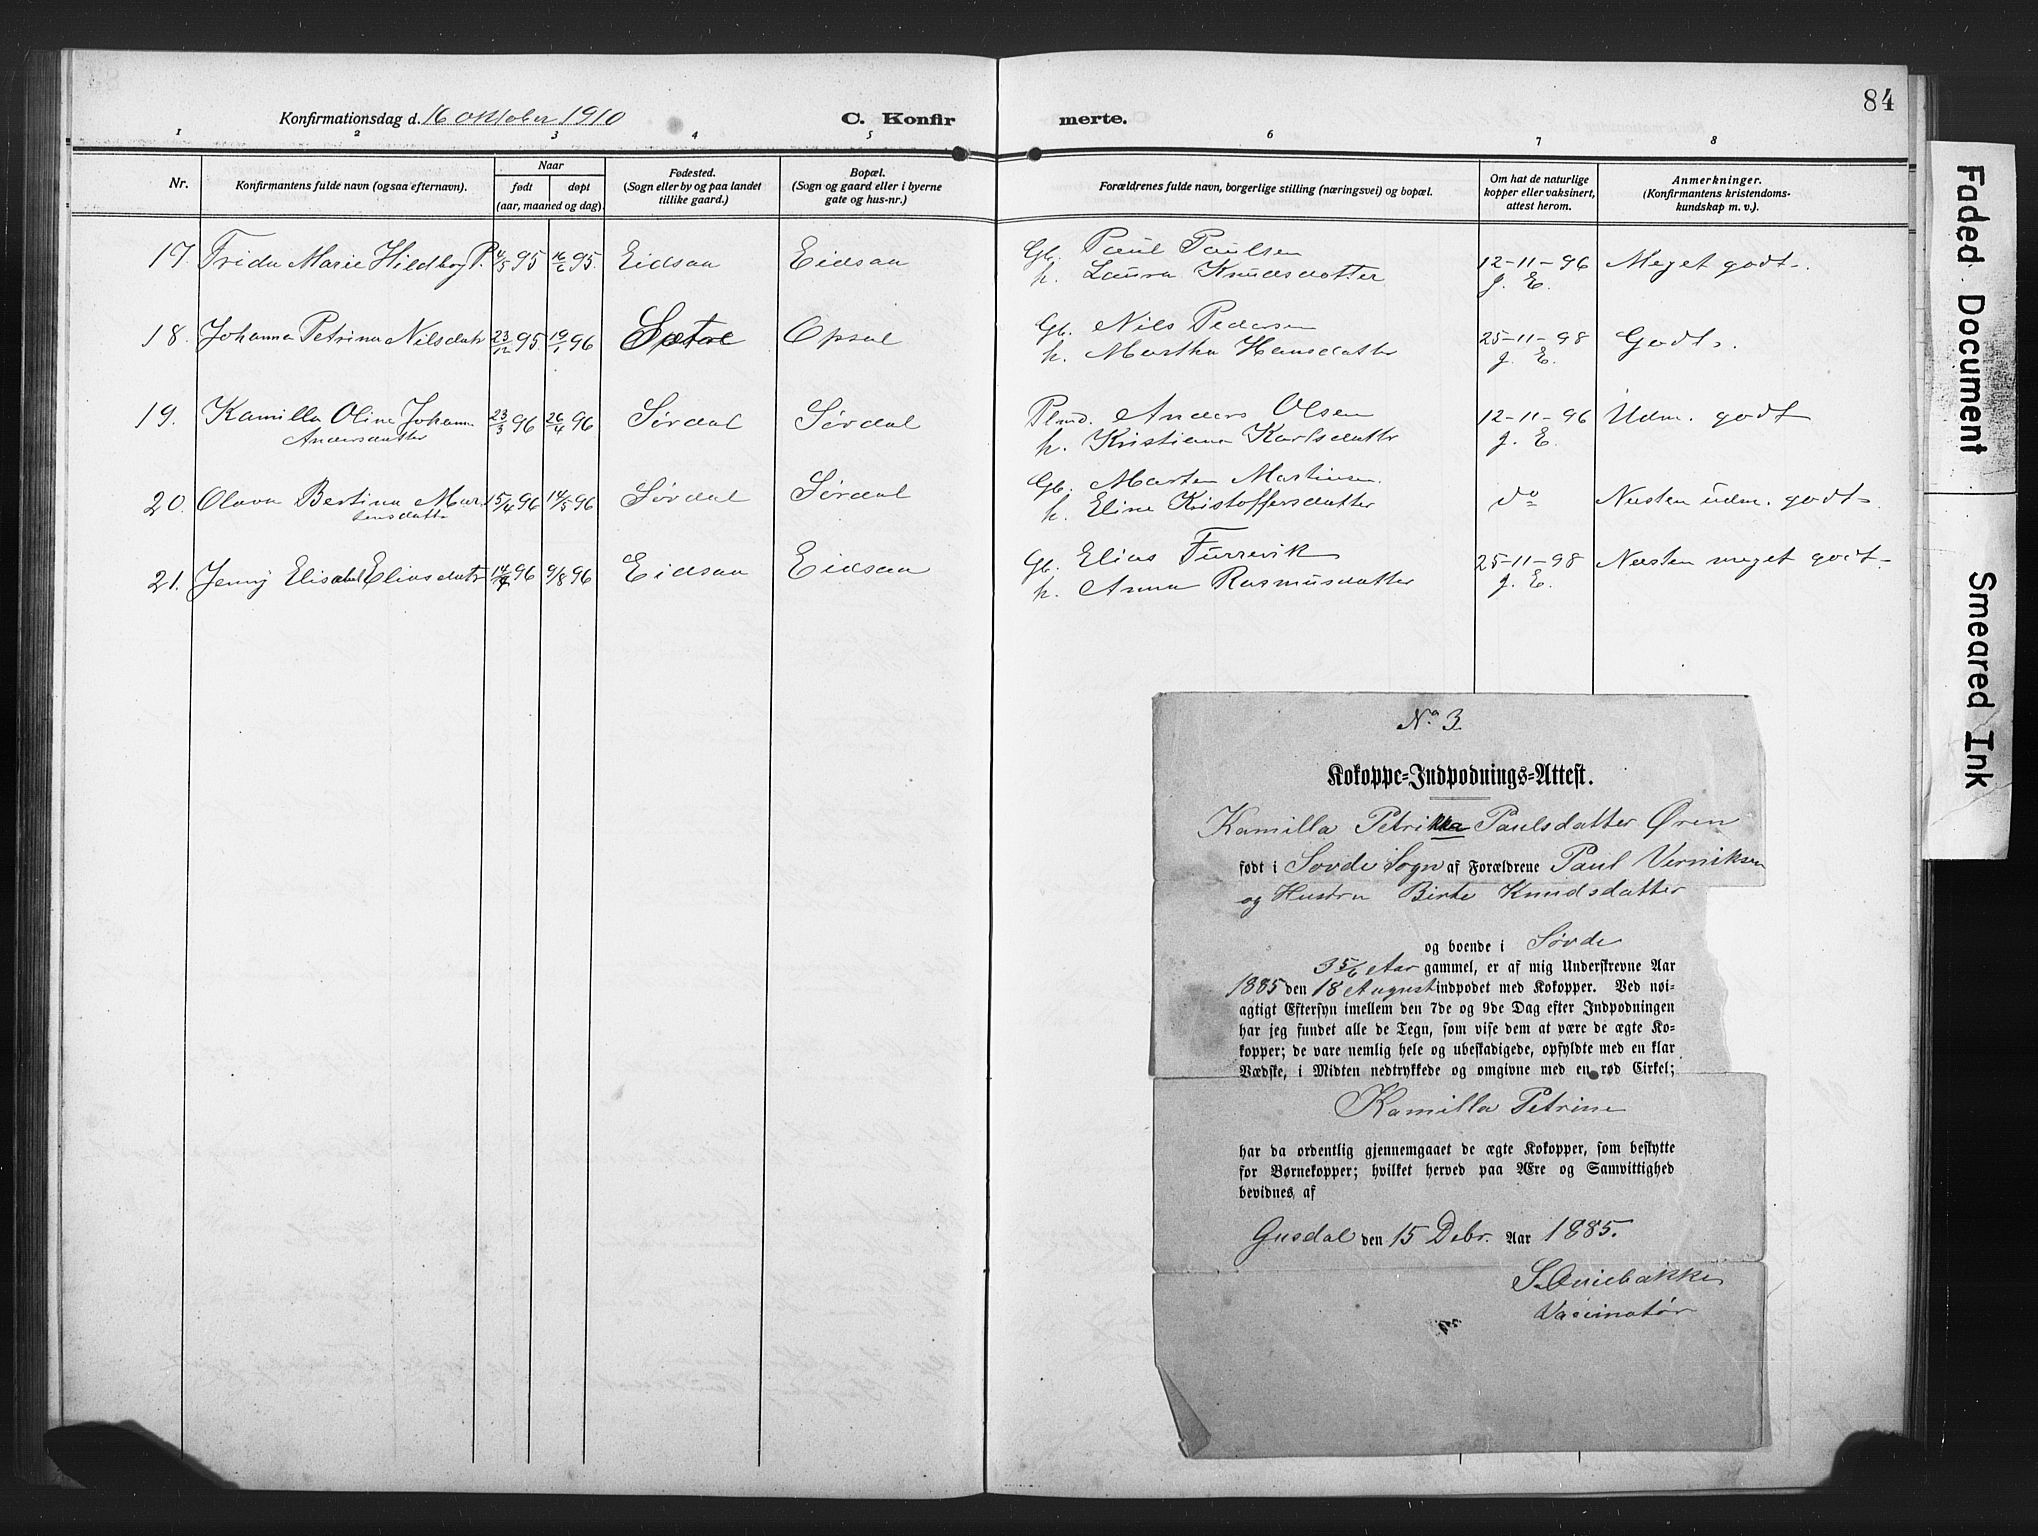 84
Konfirmationsdag d. 16 oktober 1910 C. Konfir merte.
1 2 3 4 5 6 7 8
Nr. Konfirmantens fulde navn (ogsaa efternavn). Naar født døpt (aar, maaned og dag). Fødested. (Sogn eller by og paa landet tillike gaard.) Bopæl. (Sogn og gaard eller i byerne gate og hus-nr.) Forældrenes fulde navn, borgerlige stilling (næringsvei) og bopæl. Om hat de naturlige kopper eller vaksinert, attest herom. Anmerkninger. (Konfirmantens kristendoms- kundskap m. v.).
17. Frida Marie Hildborg P. 4/5 95 16/6 95. Eidsaa Eidsaa Gb. Paul Paulsen 12-11-96 Meget godt.
h. Laura Knudsdatter J. E.
18. Johanna Petrina Nilsdatr 23/12 95 19/1 96 Sætre Opsal Gb. Nils Pedersen 25-11-98 Godt.
h. Martha Hansdatter J. E.
19. Kamilla Oline Johanne 23/3 96 26/4 96 Sørdal Sørdal Plmd. Anders Olsen 12-11-96 Udm. godt
Andersdatter h. Kristiana Karlsdattr J. E.
20. Olava Bertina Mar- 15/4 96 14/5 96 Sørdal Sørdal Gb. Marten Martinsen do Næsten udm. godt
tensdattr h. Eline Kristoffersdatter
21. Jenny Elisabet Eliasdatr 14/7 96 9/8 96 Eidsaa Eidsaa Gb. Elias Furrevik 25-11-98 Næsten meget godt.
h. Anna Rasmusdatter J. E.
No 3
Kokoppe=Indpodnings=Attest.
Kamilla Petrikka Paulsdatter Øren
født i Sovde Sogn af Forældrene Paul Verniksen
og Hustru Birte Knudsdatter
og boende i Søvde
3 5/6 Aar gammel, er af mig Underskrevne Aar
1885 den 18 August indpodet med Kokopper. Ved nøi-
agtigt Eftersyn imellem den 7de og 9de Dag efter Indpodningen
har jeg fundet alle de Tegn, som vise dem at være de ægte Ko-
kopper; de vare nemlig hele og ubeskadigede, opfyldte med en klar
Vædske, i Midten nedtrykkede og omgivne med en rød Cirkel;
Kamilla Petrine
har da ordentlig gjennemgaaet de ægte Kokopper, som beskytte
for Børnekopper; hvilket herved paa Ære og Samvittighed
bevidnes af
Gusdal den 15 Debr. Aar 1885.
Vaccinatør
Faded Document
Smeared Ink